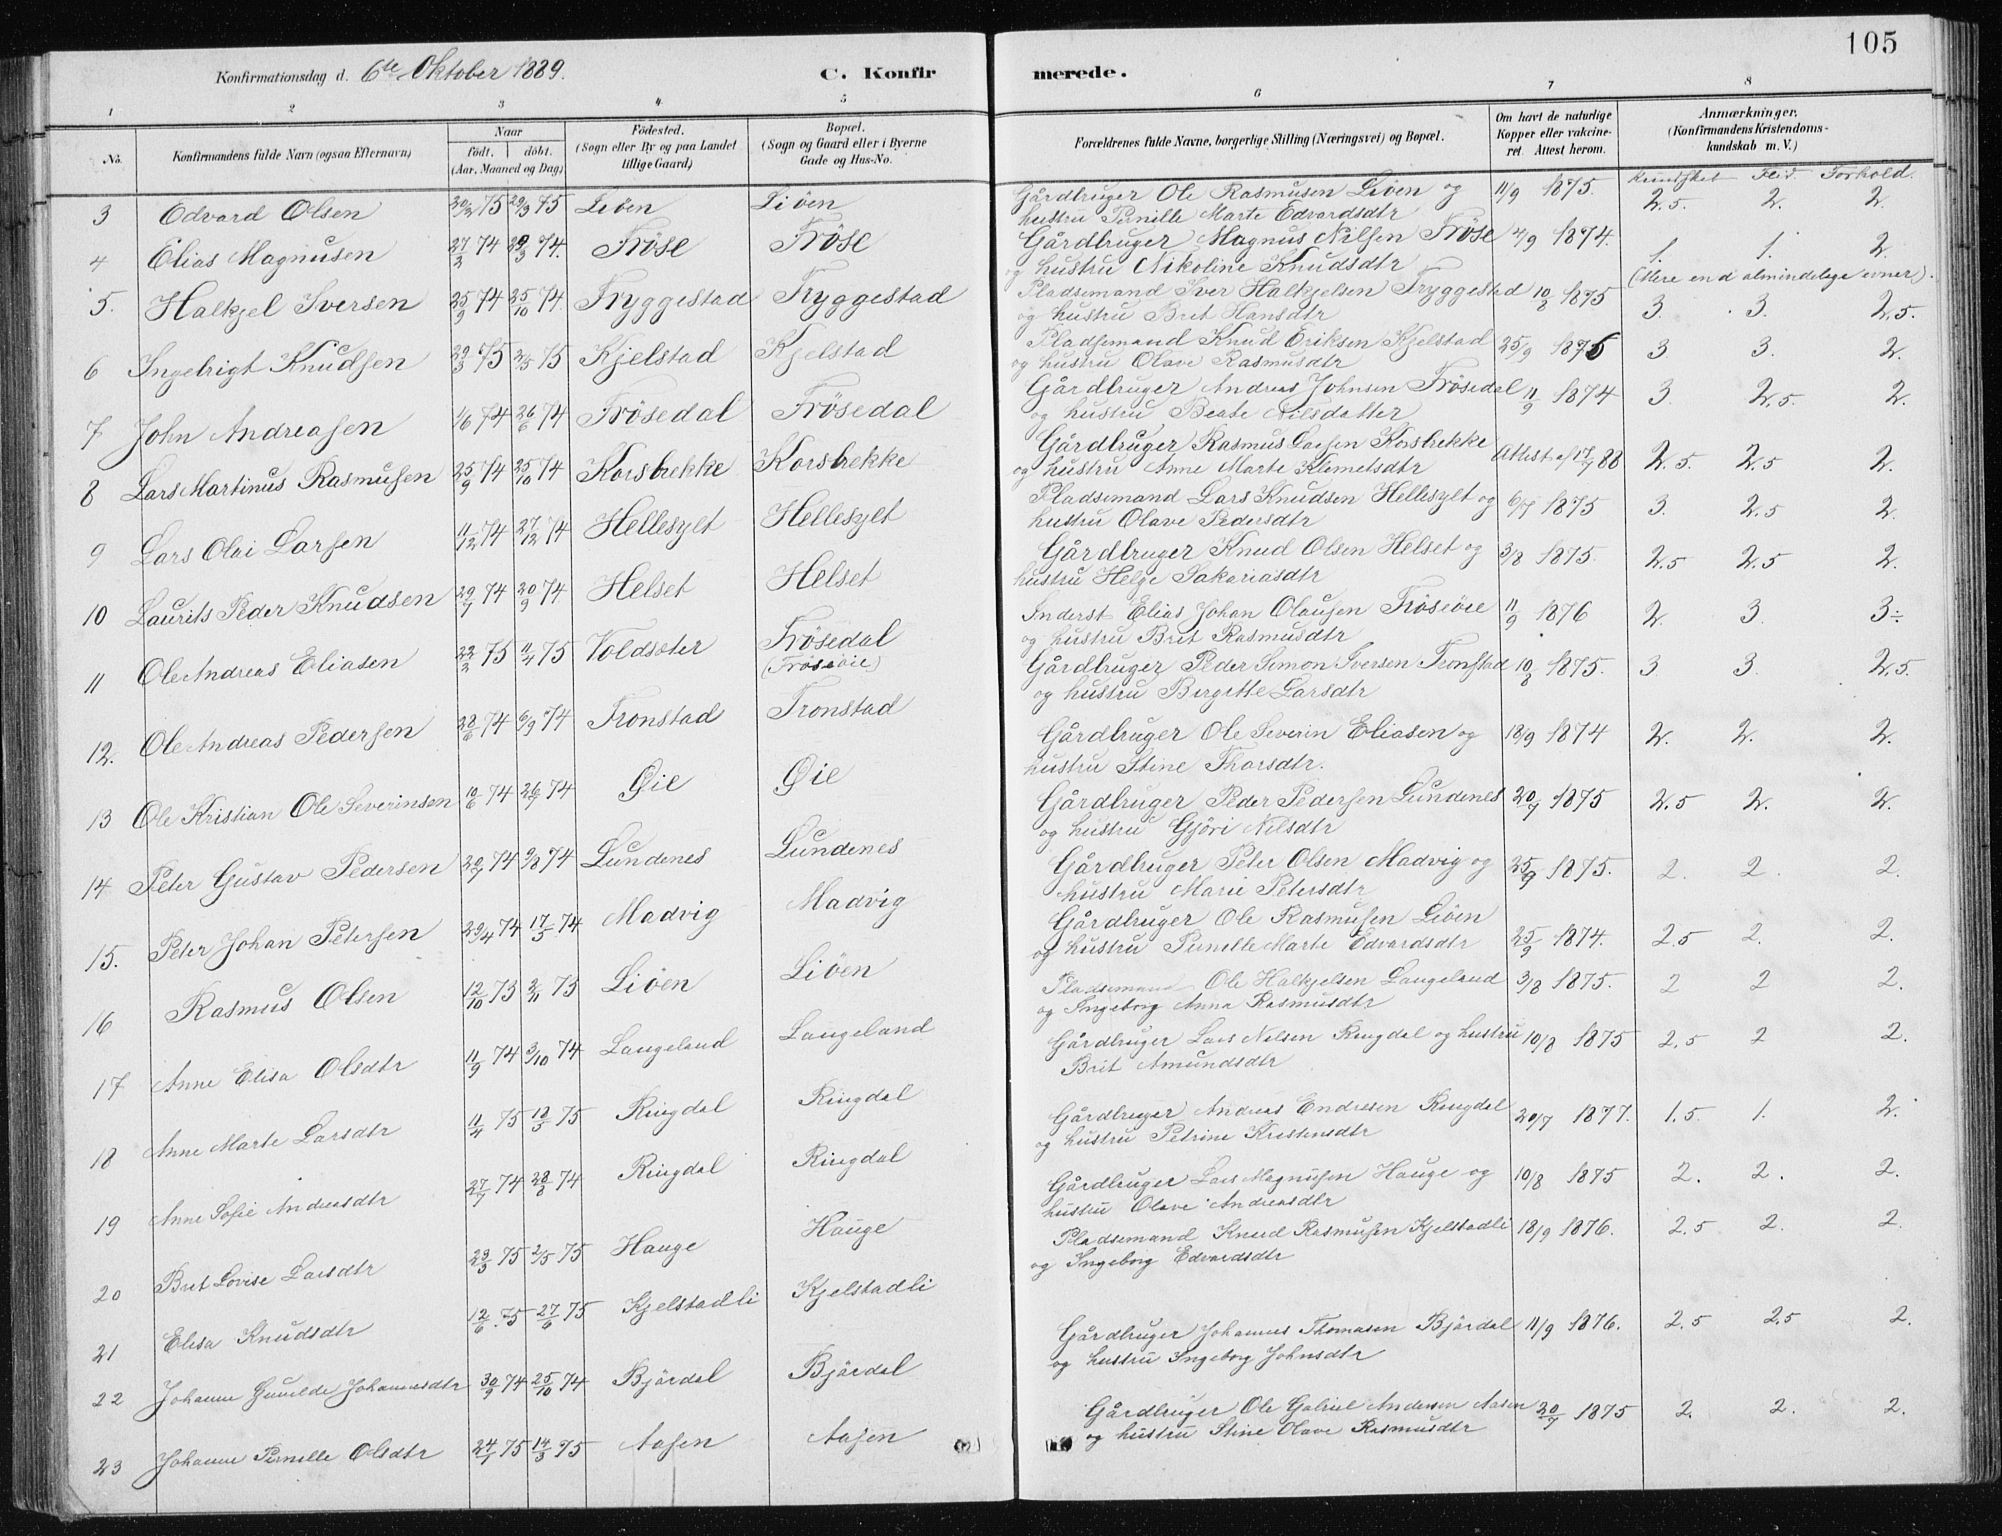 105
Konfirmationsdag d. 6te Oktober 1889. C. Konfirmerede.
1 2 3 4 5 6 7 8
No. Konfirmandens fulde Navn (ogsaa Efternavn) Naar födt. döbt. (Aar, Maaned og Dag) Födested. (Sogn eller By og paa Landet tillige Gaard) Bopæl. (Sogn og Gaard eller i Byerne Gade og Hus-No. Forældrenes fulde Navne, borgerlige Stilling (Næringsvei) og Bopæl. Om havt de naturlige Kopper eller vakcineret. Attest herom. Anmærkninger. (Konfirmandens Kristendomskundskab m. V.)
Kundskab Flid Forhold.
3 Edvard Olsen 20/2 75 29/3 75 Liöen Liöen Gårdbruger Ole Rasmusen Liöen og 11/9 1875. 2.5. 2. 2.
hustru Pernille Marte Edvardsdtr
4 Elias Magnusen 27/2 74 29/3 74. Fröse Fröse Gårdbruger Magnus Nilsen Fröse 4/9 1874. 1. 1. 2.
og hustru Nikoline Knudsdtr (Mere end almindelige evner).
5. Halkjel Iversen 25/9 74 25/10 74 Tryggestad Tryggestad Pladsemand Iver Halkjelsen Tryggestad 10/8 1875 3. 3. 2.5.
og hustru Brit Hansdtr
6 Ingebrigt Knudsen 29/3 75 2/5 75 Kjelstad Kjelstad Pladsemand Knud Eriksen Kjelstad 25/9 1875 3. 3. 2.
og hustru Olave Rasmusdtr
7 John Andreasen 1/6 74 26/6 74 Frösedal Frösedal Gårdbruger Andreas Johnsen Frösedal 11/9 1874 3. 2.5. 2.
og hustru Beate Nilsdatter
8 Lars Martinus Rasmusen 25/9 74 25/10 74 Korsbrekke Korsbrekke Gårdbruger Rasmus Larsen Korsbrekke Attest af 17/7 88 2.5. 2.5 2.
og hustru Anne Marte Klemetsdtr
9 Lars Olai Larsen 11/12 74 27/12 74 Hellesylt Hellesylt Pladsemand Lars Knudsen Hellesylt og 6/7 1875 3. 2.5 2.
hustru Olave Pedersdtr
10 Laurits Peder Knudsen 29/7 74 20/9 74 Helset Helset Gårdbruger Knud Olsen Helset og 3/8 1875. 2.5 2.5 2.
hustru Helge Sakariasdtr
11 Ole Andreas Eliasen 22/2 75 11/4 75 Voldsæter Frösedal (Frösöie) Inderst Elias Johan Olausen Frösöie 11/9 1876 2. 3. 3÷
og hustru Brit Rasmusdtr
12. Ole Andreas Pedersen 28/6 74 6/9 74 Tronstad Tronstad Gårdbruger Peder Simon Iversen Tronstad 10/8 1875. 3 3. 2.5.
og hustru Birgitte Larsdtr
13 Ole Kristian Ole Severinsen 10/6 74 26/7 74 Øie Øie Gårdbruger Ole Severin Eliasen og 18/9 1874 2. 2. 2.
hustru Stine Thorsdtr.
14 Peter Gustav Pedersen 20/7 74 9/8 74 Lundenes Lundenes Gårdbruger Peder Pedersen Lundenes 20/7 1875 2.5 2. 2.
og hustru Gjöri Nilsdtr
15. Peter Johan Petersen 29/4 74 17/5 74 Madvig Madvig Gårdbruger Peter Olsen Madvig og 25/9 1875. 2. 2. 2.
hustru Marie Petersdtr
16 Rasmus Olsen 12/10 73 2/11 73 Liöen Liöen Gårdbruger Ole Rasmusen Liöen 25/9 1874. 2.5 2. 2.
og hustru Pernille Marte Edvardsdtr
17 Anne Elisa Olsdtr 11/9 74 3/10 74 Langeland Langeland Pladsemand Ole Halkjelsen Langeland 3/8 1875. 2 2 2.
og Ingeborg Anna Rasmusdtr
18 Anne Marte Larsdtr 11/4 75 13/5 75 Ringdal Ringdal Gårdbruger Lars Nilsen Ringdal og hustru 10/8 1875 2.5 2 2.
Brit Amundsdtr
19 Anne Sofie Andreasdtr 27/7 74 28/8 74 Ringdal Ringdal Gårdbruger Andreas Endresen Ringdal 20/7 1877. 1.5. 1. 2.
og hustru Petrine Kristensdtr
20 Brit Lovise Larsdtr 23/3 75 2/5 75 Hauge Hauge Gårdbruger Lars Magnusen Hauge og 10/8 1875 2. 2. 2.
hustru Olave Andreasdtr
21 Elisa Knudsdtr 12/6 75 27/6 75 Kjelstadli Kjelstadli Pladsemand Knud Rasmusen Kjelstadli 18/9 1876. 2.5 2. 2.
og Ingeborg Edvardsdtr
22 Johanne Gunilde Johannesdtr 30/9 74 25/10 74 Björdal Björdal Gårdbruger Johannes Thomasen Björdal 11/9 1876. 2.5 2.5 2.
og hustru Ingeborg Johnsdtr
23 Johanne Pernille Olsdtr 24/1 75 14/3 75 Aasen Aasen Gårdbruger Ole Gabriel Andersen Aasen 20/7 1875 2. 2. 2.
og hustru Stine Olave Rasmusdtr